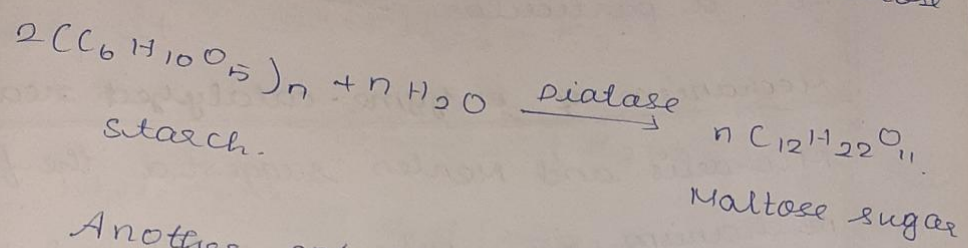 2(C6H10O5)n + nH2O Diatase → nC12H22O11
Starch. Maltose sugar